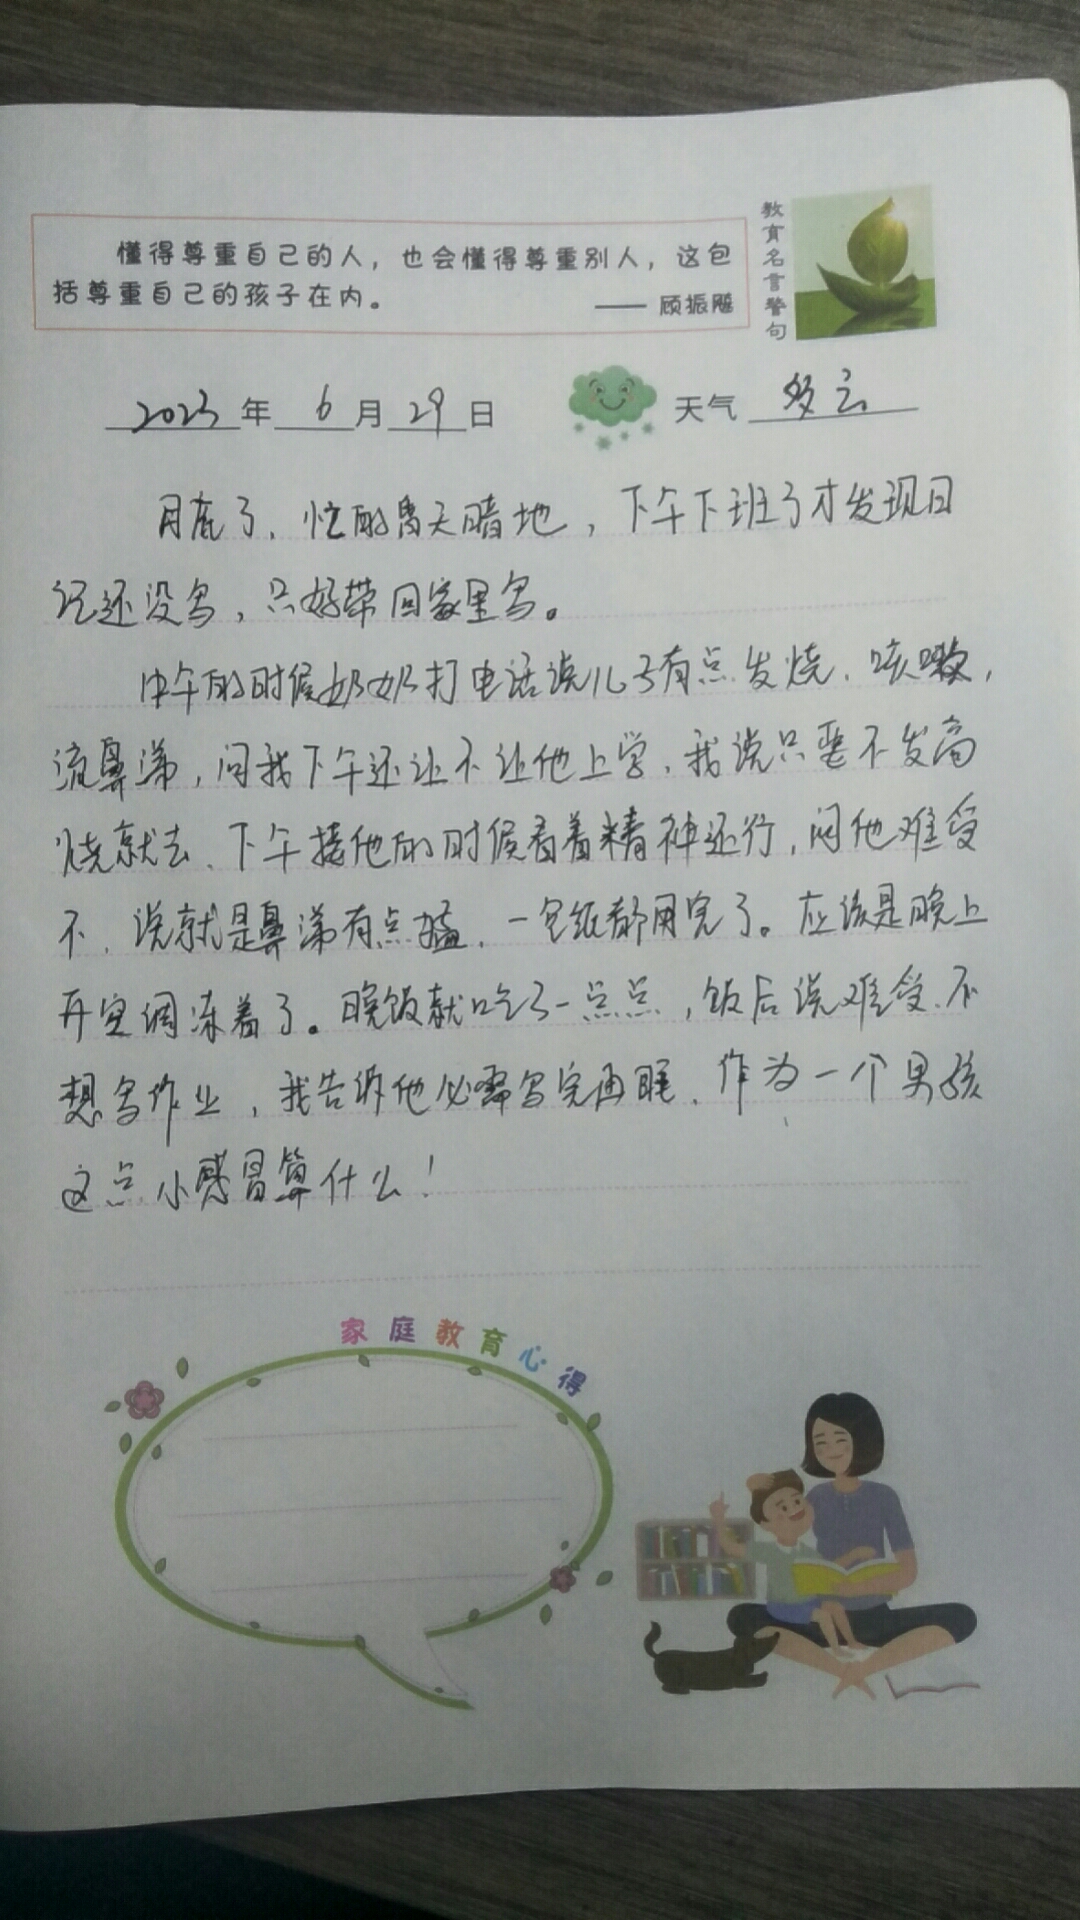 懂得尊重自己的人，也会懂得尊重别人，这包
括尊重自己的孩子在内。
—— 顾振飚
教育名言警句
2023年 6月29日 天气 多云
月底了、忙的昏天暗地，下午下班了才发现日
记还没写，只好带回家里写。
中午的时候奶奶打电话说儿子有点发烧、咳嗽，
流鼻涕，问我下午还让不让他上学、我说只要不发高
烧就去、下午接他的时候看着精神还行，问他难受
不、说就是鼻涕有点猛、一包纸都用完了。应该是晚上
开空调冻着了。晚饭就吃了一点点，饭后说难受、不
想写作业，我告诉他必需写完再睡、作为一个男孩
这点小感冒算什么！
家庭教育心得